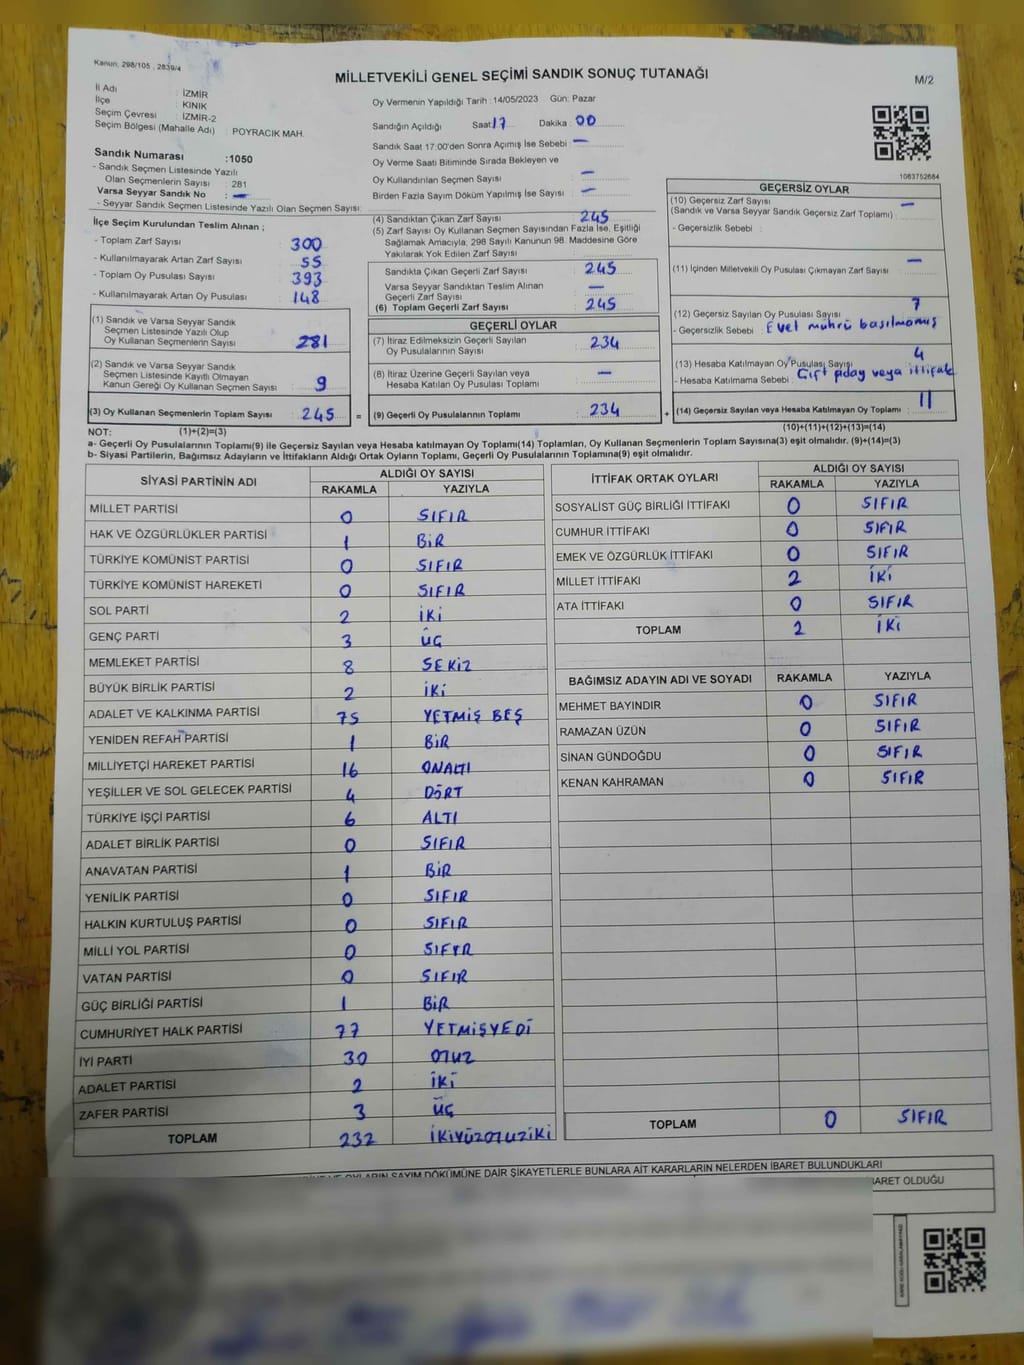 Kanun, 298/105 , 2839/4
MİLLETVEKİLİ GENEL SEÇİMİ SANDIK SONUÇ TUTANAĞI
M/2
İl Adı : İZMİR
İlçe : KINIK
Seçim Çevresi : İZMİR-2
Seçim Bölgesi (Mahalle Adı) : POYRACIK MAH.
Oy Vermenin Yapıldığı Tarih : 14/05/2023 Gün: Pazar
Sandığın Açıldığı Saat 17 Dakika : 00
Sandık Saat 17:00'den Sonra Açımış İse Sebebi : —
Oy Verme Saati Bitiminde Sırada Bekleyen ve
Oy Kullandırılan Seçmen Sayısı —
Birden Fazla Sayım Döküm Yapılmış İse Sayısı —
Sandık Numarası :1050
- Sandık Seçmen Listesinde Yazılı
Olan Seçmenlerin Sayısı : 281
Varsa Seyyar Sandık No : —
- Seyyar Sandık Seçmen Listesinde Yazılı Olan Seçmen Sayısı:
1063752664
İlçe Seçim Kurulundan Teslim Alınan ;
- Toplam Zarf Sayısı 300
- Kullanılmayarak Artan Zarf Sayısı 55
- Toplam Oy Pusulası Sayısı 393
- Kullanılmayarak Artan Oy Pusulası 148
(1) Sandık ve Varsa Seyyar Sandık
Seçmen Listesinde Yazılı Olup
Oy Kullanan Seçmenlerin Sayısı 281
(2) Sandık ve Varsa Seyyar Sandık
Seçmen Listesinde Kayıtlı Olmayan
Kanun Gereği Oy Kullanan Seçmen Sayısı 9
(3) Oy Kullanan Seçmenlerin Toplam Sayısı 245 =
(1)+(2)=(3)
(4) Sandıktan Çıkan Zarf Sayısı 245
(5) Zarf Sayısı Oy Kullanan Seçmen Sayısından Fazla İse, Eşitliği
Sağlamak Amacıyla, 298 Sayılı Kanunun 98. Maddesine Göre
Yakılarak Yok Edilen Zarf Sayısı :
Sandıkta Çıkan Geçerli Zarf Sayısı 245
Varsa Seyyar Sandıktan Teslim Alınan
Geçerli Zarf Sayısı —
(6) Toplam Geçerli Zarf Sayısı 245
GEÇERLİ OYLAR
(7) İtiraz Edilmeksizin Geçerli Sayılan
Oy Pusulalarının Sayısı 234
(8) İtiraz Üzerine Geçerli Sayılan veya
Hesaba Katılan Oy Pusulası Toplamı —
(9) Geçerli Oy Pusulalarının Toplamı 234 +
GEÇERSİZ OYLAR
(10) Geçersiz Zarf Sayısı —
(Sandık ve Varsa Seyyar Sandık Geçersiz Zarf Toplamı) :
- Geçersizlik Sebebi :
(11) İçinden Milletvekili Oy Pusulası Çıkmayan Zarf Sayısı —
(12) Geçersiz Sayılan Oy Pusulası Sayısı 7
- Geçersizlik Sebebi : Evet mührü basılmamış
(13) Hesaba Katılmayan Oy Pusulası Sayısı 4
- Hesaba Katılmama Sebebi : Çift aday veya ittifak
(14) Geçersiz Sayılan veya Hesaba Katılmayan Oy Toplamı : 11
(10)+(11)+(12)+(13)=(14)
NOT:
a- Geçerli Oy Pusulalarının Toplamı(9) ile Geçersiz Sayılan veya Hesaba katılmayan Oy Toplamı(14) Toplamları, Oy Kullanan Seçmenlerin Toplam Sayısına(3) eşit olmalıdır. (9)+(14)=(3)
b- Siyasi Partilerin, Bağımsız Adayların ve İttifakların Aldığı Ortak Oyların Toplamı, Geçerli Oy Pusulalarının Toplamına(9) eşit olmalıdır.
SİYASİ PARTİNİN ADI ALDIĞI OY SAYISI
RAKAMLA YAZIYLA
MİLLET PARTİSİ 0 SIFIR
HAK VE ÖZGÜRLÜKLER PARTİSİ 1 BİR
TÜRKİYE KOMÜNİST PARTİSİ 0 SIFIR
TÜRKİYE KOMÜNİST HAREKETİ 0 SIFIR
SOL PARTİ 2 İKİ
GENÇ PARTİ 3 ÜÇ
MEMLEKET PARTİSİ 8 SEKİZ
BÜYÜK BİRLİK PARTİSİ 2 İKİ
ADALET VE KALKINMA PARTİSİ 75 YETMİŞ BEŞ
YENİDEN REFAH PARTİSİ 1 BİR
MİLLİYETÇİ HAREKET PARTİSİ 16 ONALTI
YEŞİLLER VE SOL GELECEK PARTİSİ 4 DÖRT
TÜRKİYE İŞÇİ PARTİSİ 6 ALTI
ADALET BİRLİK PARTİSİ 0 SIFIR
ANAVATAN PARTİSİ 1 BİR
YENİLİK PARTİSİ 0 SIFIR
HALKIN KURTULUŞ PARTİSİ 0 SIFIR
MİLLİ YOL PARTİSİ 0 SIFIR
VATAN PARTİSİ 0 SIFIR
GÜÇ BİRLİĞİ PARTİSİ 1 BİR
CUMHURİYET HALK PARTİSİ 77 YETMİŞYEDİ
İYİ PARTİ 30 OTUZ
ADALET PARTİSİ 2 İKİ
ZAFER PARTİSİ 3 ÜÇ
TOPLAM 232 İKİYÜZOTUZİKİ
İTTİFAK ORTAK OYLARI ALDIĞI OY SAYISI
RAKAMLA YAZIYLA
SOSYALİST GÜÇ BİRLİĞİ İTTİFAKI 0 SIFIR
CUMHUR İTTİFAKI 0 SIFIR
EMEK VE ÖZGÜRLÜK İTTİFAKI 0 SIFIR
MİLLET İTTİFAKI 2 İKİ
ATA İTTİFAKI 0 SIFIR
TOPLAM 2 İKİ
BAĞIMSIZ ADAYIN ADI VE SOYADI RAKAMLA YAZIYLA
MEHMET BAYINDIR 0 SIFIR
RAMAZAN ÜZÜN 0 SIFIR
SİNAN GÜNDOĞDU 0 SIFIR
KENAN KAHRAMAN 0 SIFIR
TOPLAM 0 SIFIR
OYLARIN SAYIM DÖKÜMÜNE DAİR ŞİKAYETLERLE BUNLARA AİT KARARLARIN NELERDEN İBARET BULUNDUKLARI
İBARET OLDUĞU